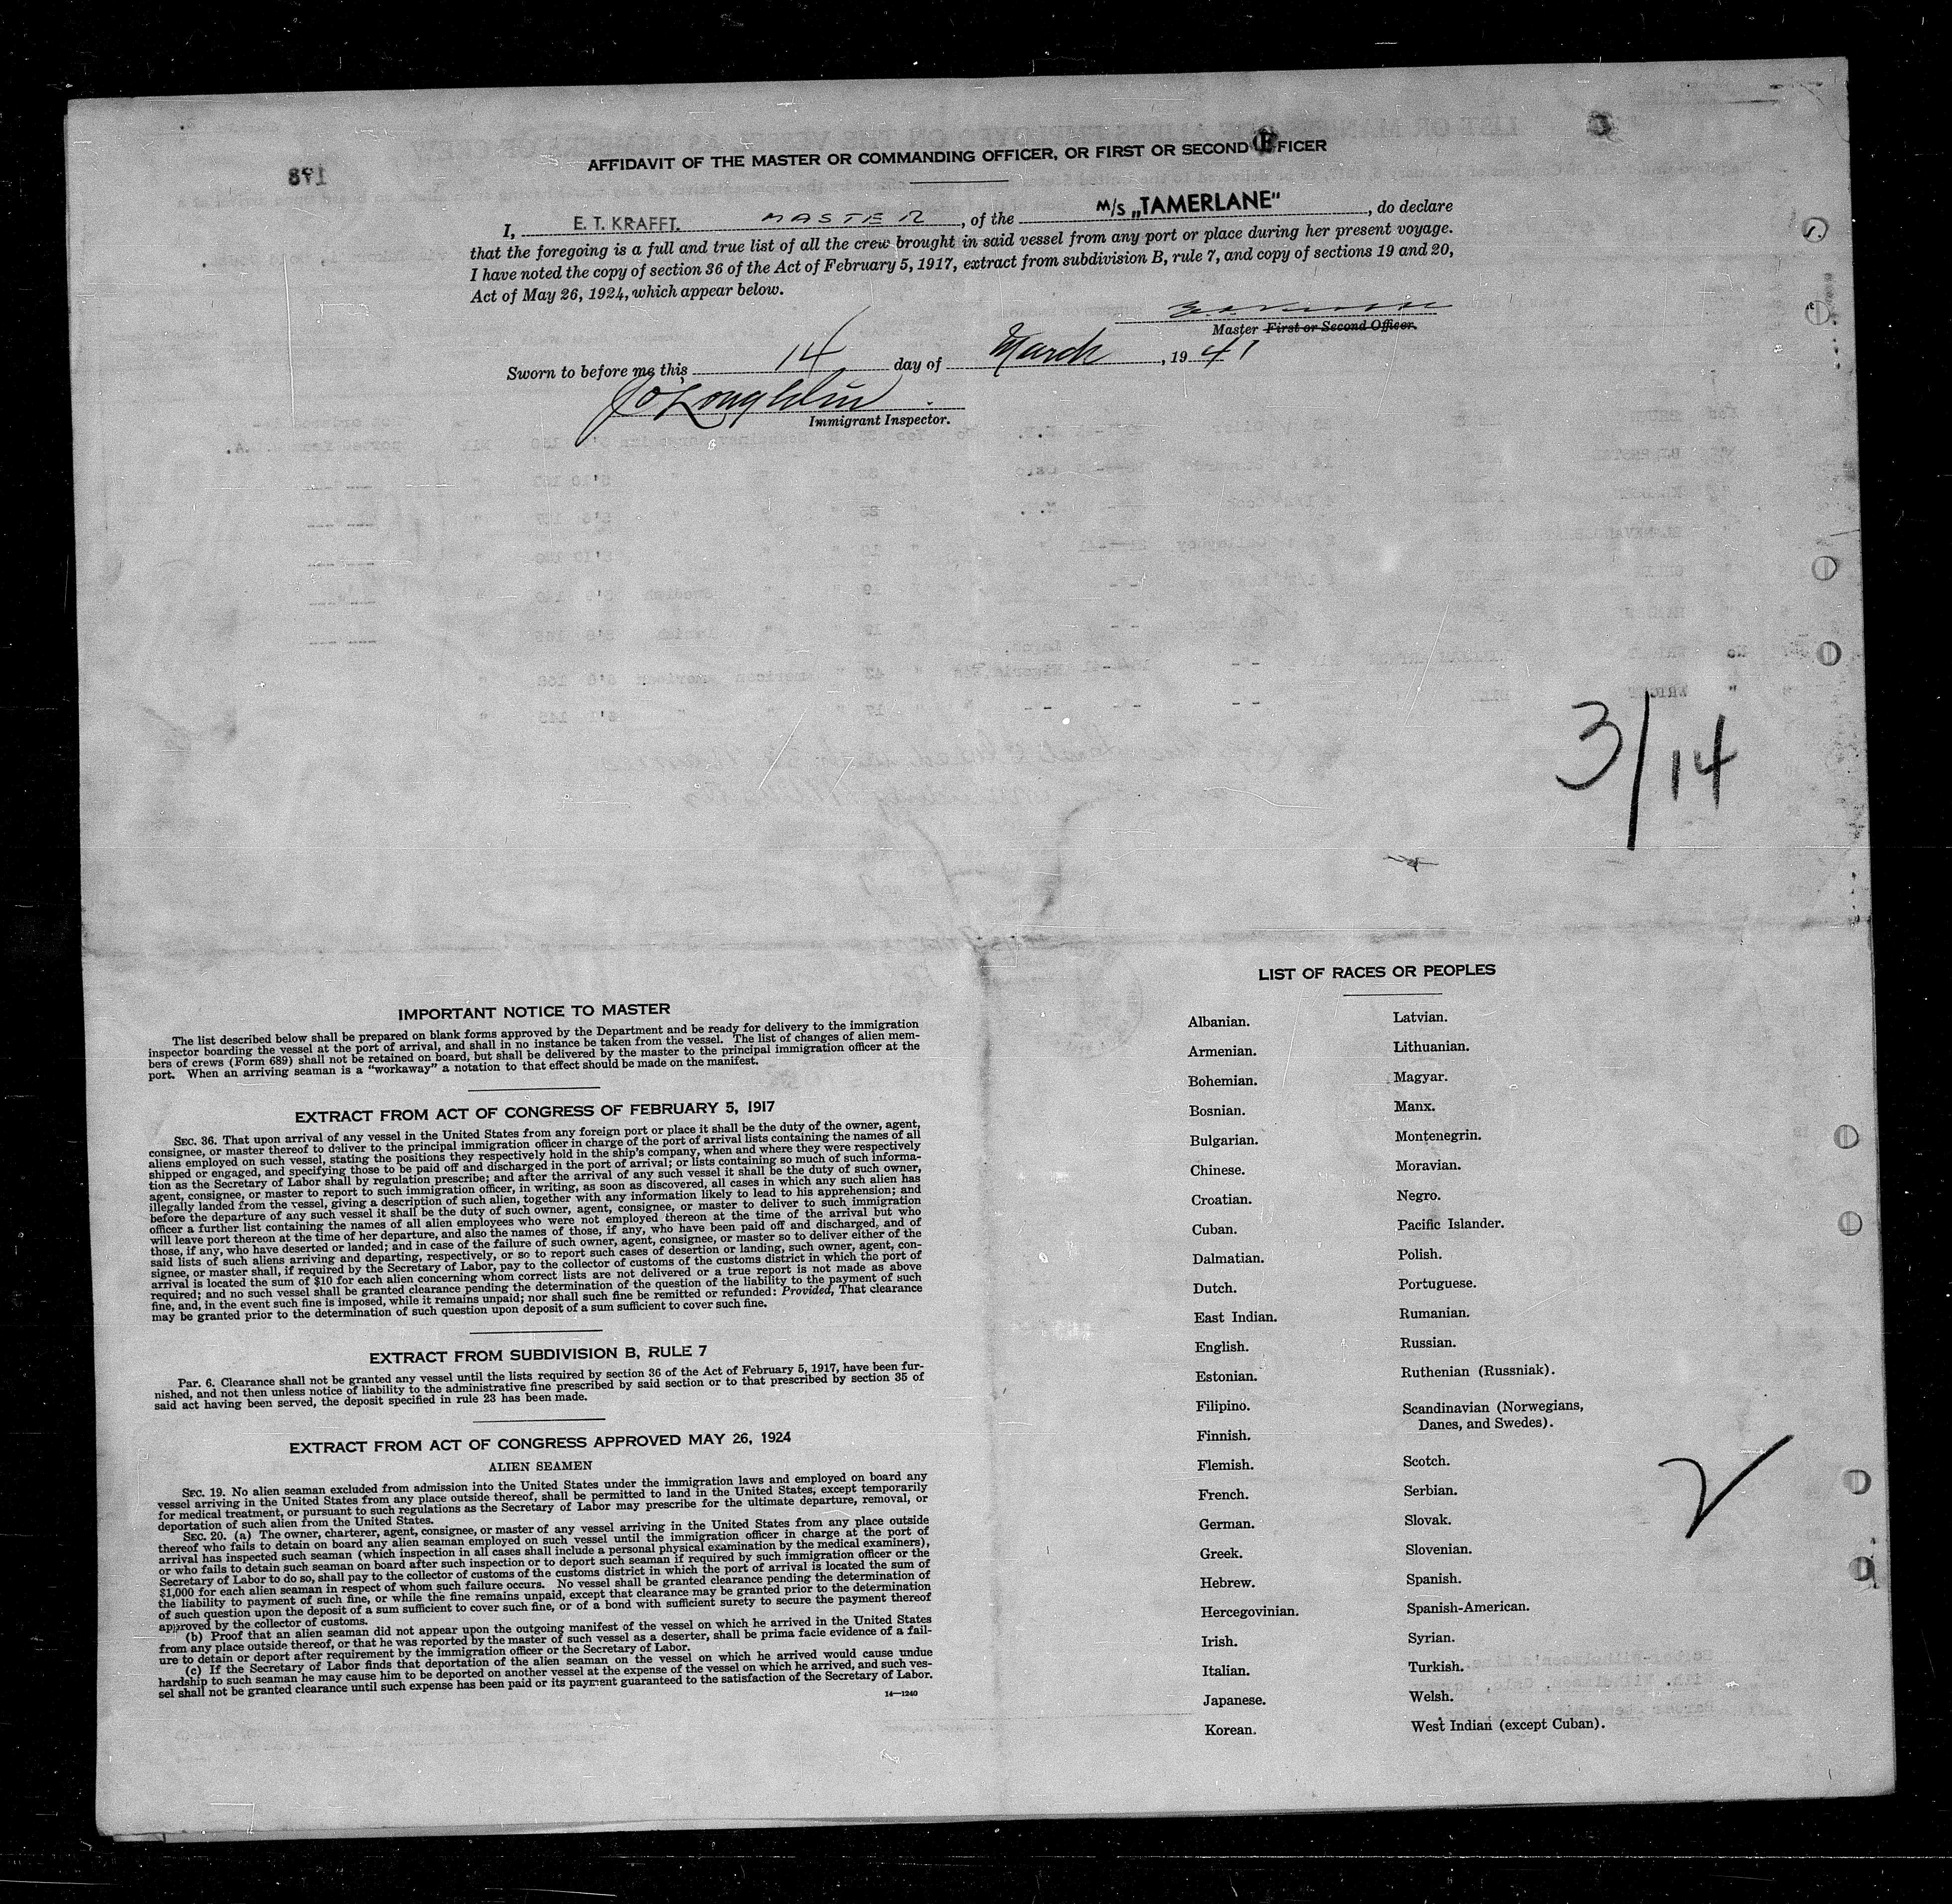 AFFIDAVIT OF THE MASTER OR COMMANDING OFFICER, OR FIRST OR SECOND OFFICER
I, E. T. KRAFFT. MASTER, of the M/S „TAMERLANE", do declare
that the foregoing is a full and true list of all the crew brought in said vessel from any port or place during her present voyage.
I have noted the copy of section 36 of the Act of February 5, 1917, extract from subdivision B, rule 7, and copy of sections 19 and 20,
Act of May 26, 1924, which appear below.
Master First or Second Officer.
Sworn to before me this 14 day of March, 1941
Immigrant Inspector.
3/14
IMPORTANT NOTICE TO MASTER
The list described below shall be prepared on blank forms approved by the Department and be ready for delivery to the immigration
inspector boarding the vessel at the port of arrival, and shall in no instance be taken from the vessel. The list of changes of alien mem-
bers of crews (Form 689) shall not be retained on board, but shall be delivered by the master to the principal immigration officer at the
port. When an arriving seaman is a “workaway” a notation to that effect should be made on the manifest.
EXTRACT FROM ACT OF CONGRESS OF FEBRUARY 5, 1917
SEC. 36. That upon arrival of any vessel in the United States from any foreign port or place it shall be the duty of the owner, agent,
consignee, or master thereof to deliver to the principal immigration officer in charge of the port of arrival lists containing the names of all
aliens employed on such vessel, stating the positions they respectively hold in the ship's company, when and where they were respectively
shipped or engaged, and specifying those to be paid off and discharged in the port of arrival; or lists containing so much of such informa-
tion as the Secretary of Labor shall by regulation prescribe; and after the arrival of any such vessel it shall be the duty of such owner,
agent, consignee, or master to report to such immigration officer, in writing, as soon as discovered, all cases in which any such alien has
illegally landed from the vessel, giving a description of such alien, together with any information likely to lead to his apprehension; and
before the departure of any such vessel it shall be the duty of such owner, agent, consignee, or master to deliver to such immigration
officer a further list containing the names of all alien employees who were not employed thereon at the time of the arrival but who
will leave port thereon at the time of her departure, and also the names of those, if any, who have been paid off and discharged, and of
those, if any, who have deserted or landed; and in case of the failure of such owner, agent, consignee, or master so to deliver either of the
said lists of such aliens arriving and departing, respectively, or so to report such cases of desertion or landing, such owner, agent, con-
signee, or master shall, if required by the Secretary of Labor, pay to the collector of customs of the customs district in which the port of
arrival is located the sum of $10 for each alien concerning whom correct lists are not delivered or a true report is not made as above
required; and no such vessel shall be granted clearance pending the determination of the question of the liability to the payment of such
fine, and, in the event such fine is imposed, while it remains unpaid; nor shall such fine be remitted or refunded: Provided, That clearance
may be granted prior to the determination of such question upon deposit of a sum sufficient to cover such fine.
EXTRACT FROM SUBDIVISION B, RULE 7
Par. 6. Clearance shall not be granted any vessel until the lists required by section 36 of the Act of February 5, 1917, have been fur-
nished, and not then unless notice of liability to the administrative fine prescribed by said section or to that prescribed by section 35 of
said act having been served, the deposit specified in rule 23 has been made.
EXTRACT FROM ACT OF CONGRESS APPROVED MAY 26, 1924
ALIEN SEAMEN
SEC. 19. No alien seaman excluded from admission into the United States under the immigration laws and employed on board any
vessel arriving in the United States from any place outside thereof, shall be permitted to land in the United States, except temporarily
for medical treatment, or pursuant to such regulations as the Secretary of Labor may prescribe for the ultimate departure, removal, or
deportation of such alien from the United States.
SEC. 20. (a) The owner, charterer, agent, consignee, or master of any vessel arriving in the United States from any place outside
thereof who fails to detain on board any alien seaman employed on such vessel until the immigration officer in charge at the port of
arrival has inspected such seaman (which inspection in all cases shall include a personal physical examination by the medical examiners),
or who fails to detain such seaman on board after such inspection or to deport such seaman if required by such immigration officer or the
Secretary of Labor to do so, shall pay to the collector of customs of the customs district in which the port of arrival is located the sum of
$1,000 for each alien seaman in respect of whom such failure occurs. No vessel shall be granted clearance pending the determination of
the liability to payment of such fine, or while the fine remains unpaid, except that clearance may be granted prior to the determination
of such question upon the deposit of a sum sufficient to cover such fine, or of a bond with sufficient surety to secure the payment thereof
approved by the collector of customs.
(b) Proof that an alien seaman did not appear upon the outgoing manifest of the vessel on which he arrived in the United States
from any place outside thereof, or that he was reported by the master of such vessel as a deserter, shall be prima facie evidence of a fail-
ure to detain or deport after requirement by the immigration officer or the Secretary of Labor.
(c) If the Secretary of Labor finds that deportation of the alien seaman on the vessel on which he arrived would cause undue
hardship to such seaman he may cause him to be deported on another vessel at the expense of the vessel on which he arrived, and such ves-
sel shall not be granted clearance until such expense has been paid or its payment guaranteed to the satisfaction of the Secretary of Labor.
14—1240
LIST OF RACES OR PEOPLES
Albanian.
Armenian.
Bohemian.
Bosnian.
Bulgarian.
Chinese.
Croatian.
Cuban.
Dalmatian.
Dutch.
East Indian.
English.
Estonian.
Filipino.
Finnish.
Flemish.
French.
German.
Greek.
Hebrew.
Hercegovinian.
Irish.
Italian.
Japanese.
Korean.
Latvian.
Lithuanian.
Magyar.
Manx.
Montenegrin.
Moravian.
Negro.
Pacific Islander.
Polish.
Portuguese.
Rumanian.
Russian.
Ruthenian (Russniak).
Scandinavian (Norwegians,
Danes, and Swedes).
Scotch.
Serbian.
Slovak.
Slovenian.
Spanish.
Spanish-American.
Syrian.
Turkish.
Welsh.
West Indian (except Cuban).